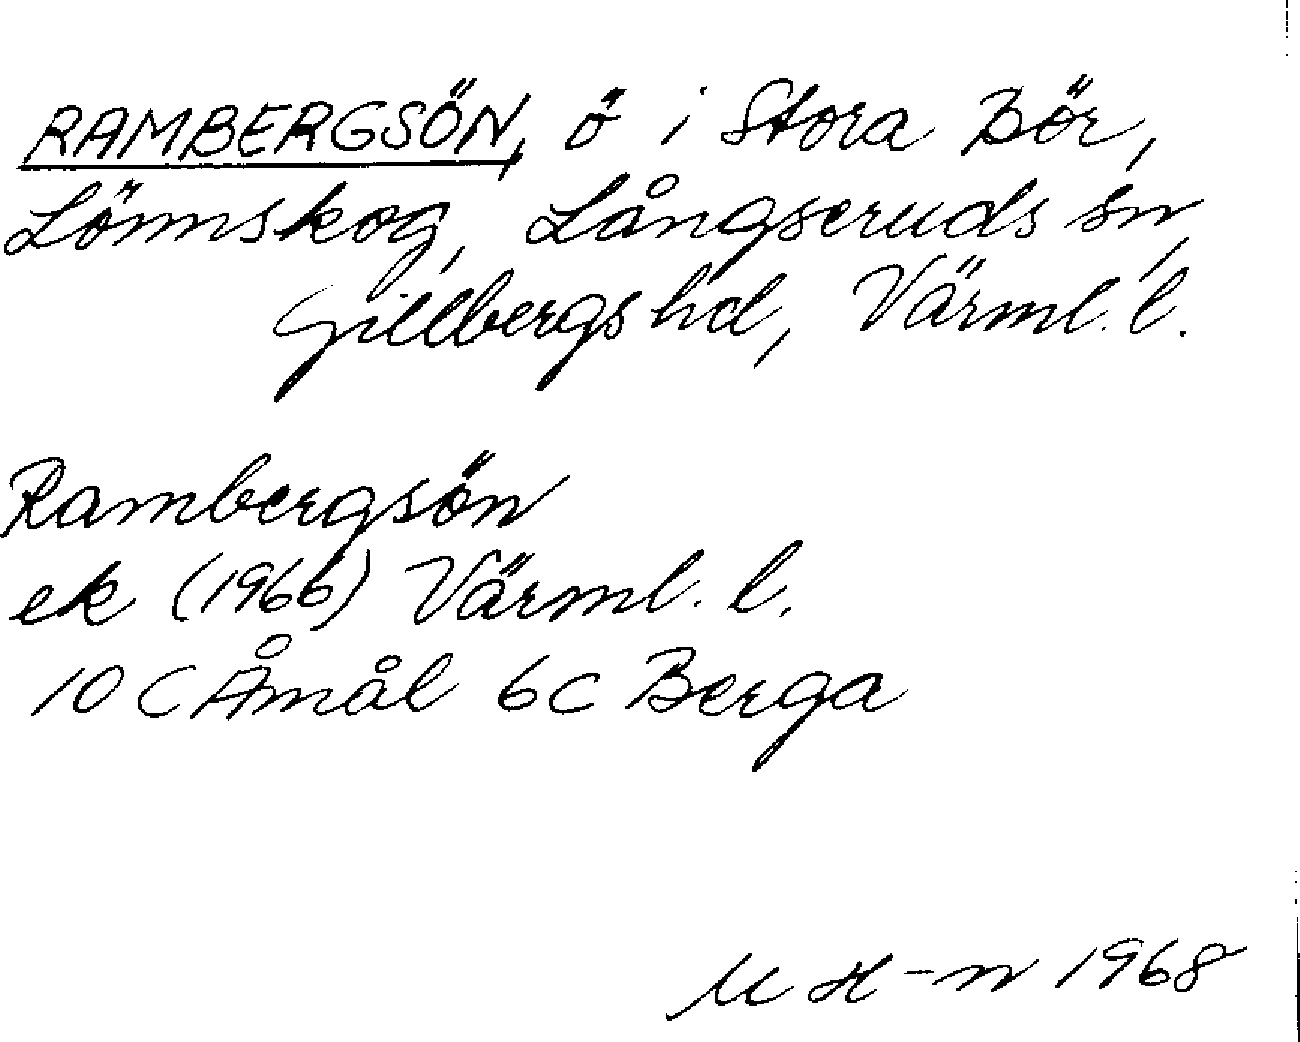 RAMBERGSÖN, ö i Stora Bör,
Lönnskog, Långseruds sn,
Gillbergs hd, Värml. l.
Rambergsön
ek (1966) Värml. l.
10 C Åmål 6c Berga
M H-n 1968